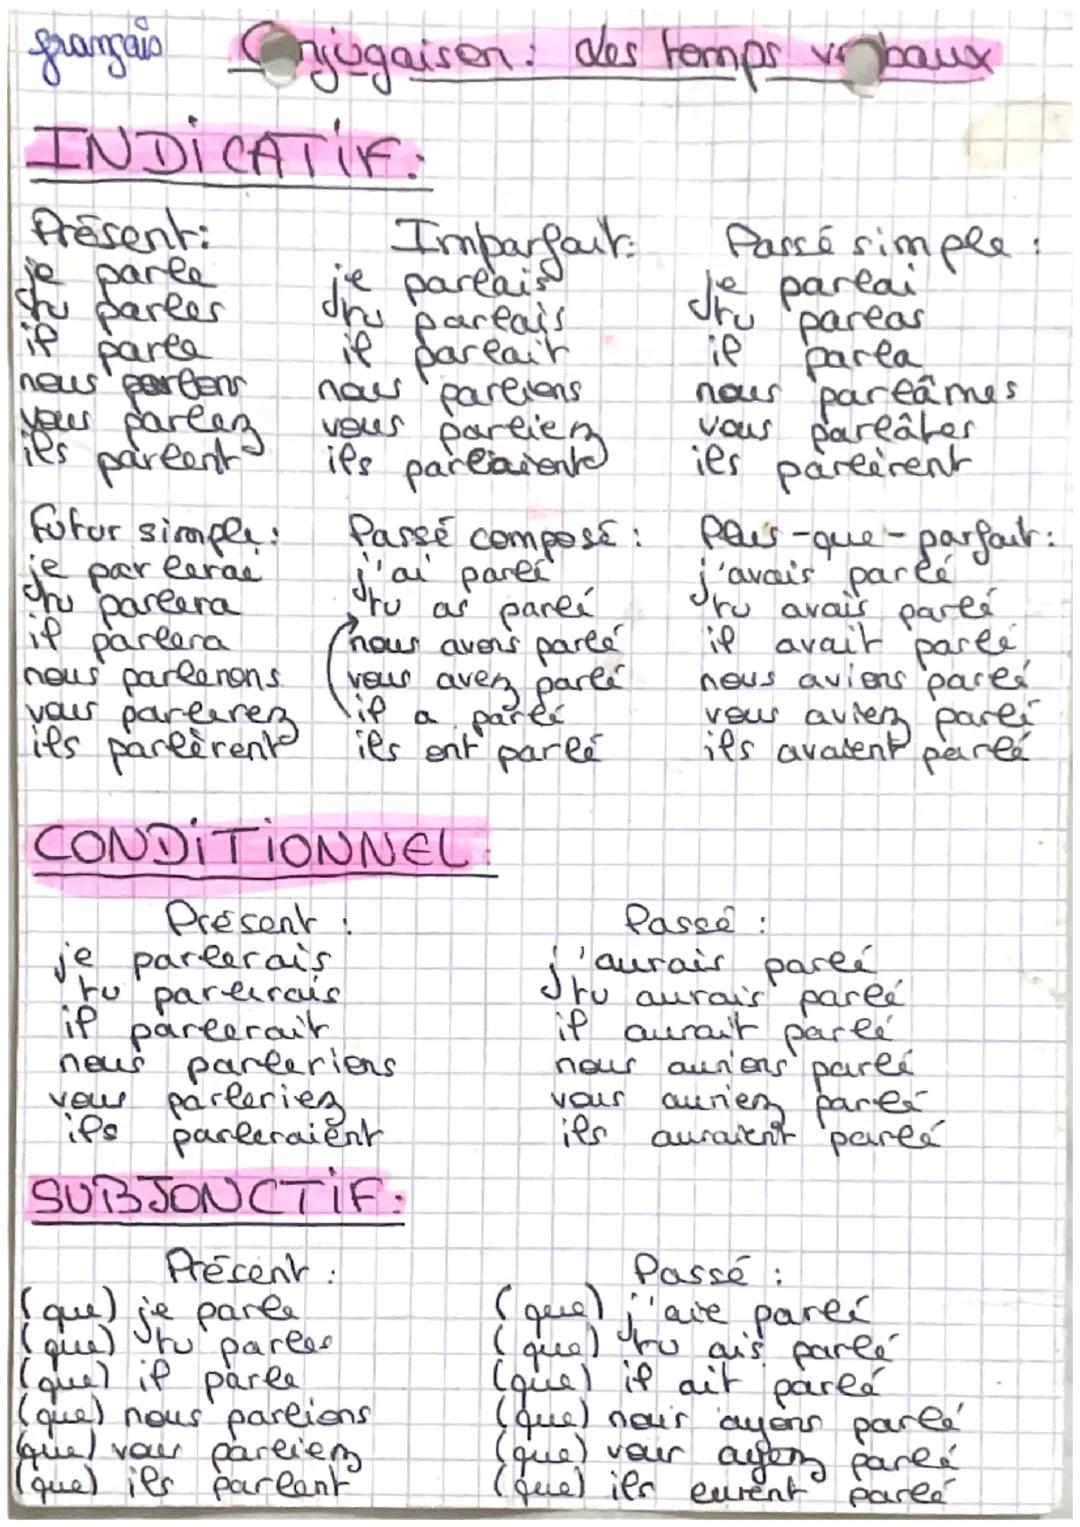 français Conjugaison : des temps verbaux
INDiCATiF :
Présent : Imparfait : Passé simple :
je parle je parlais je parlai
tu parles tu parlais tu parlas
il parle il parlait il parla
nous parlons nous parlions nous parlâmes
vous parlez vous parliez vous parlâtes
ils parlent ils parlaient ils parlèrent
futur simple : Passé composé : Plus-que-parfait :
je parlerai j'ai parlé j'avais parlé
tu parlera tu as parlé tu avais parlé
il parlera nous avons parlé il avait parlé
nous parlerons vous avez parlé nous avions parlé
vous parlerez il a parlé vous aviez parlé
ils parlèrent ils ont parlé ils avaient parlé
CONDiTiONNEL :
Présent : Passé :
je parlerais j'aurais parlé
tu parlerais tu aurais parlé
il parlerait il aurait parlé
nous parlerions nous aurions parlé
vous parleriez vous auriez parlé
ils parleraient ils auraient parlé
SUBJONCTiF :
Présent : Passé :
(que) je parle (que) j'aie parlé
(que) tu parles (que) tu ais parlé
(que) il parle (que) il ait parlé
(que) nous parlions (que) nous ayons parlé
(que) vous parliez (que) vous ayez parlé
(que) ils parlent (que) ils eurent parlé